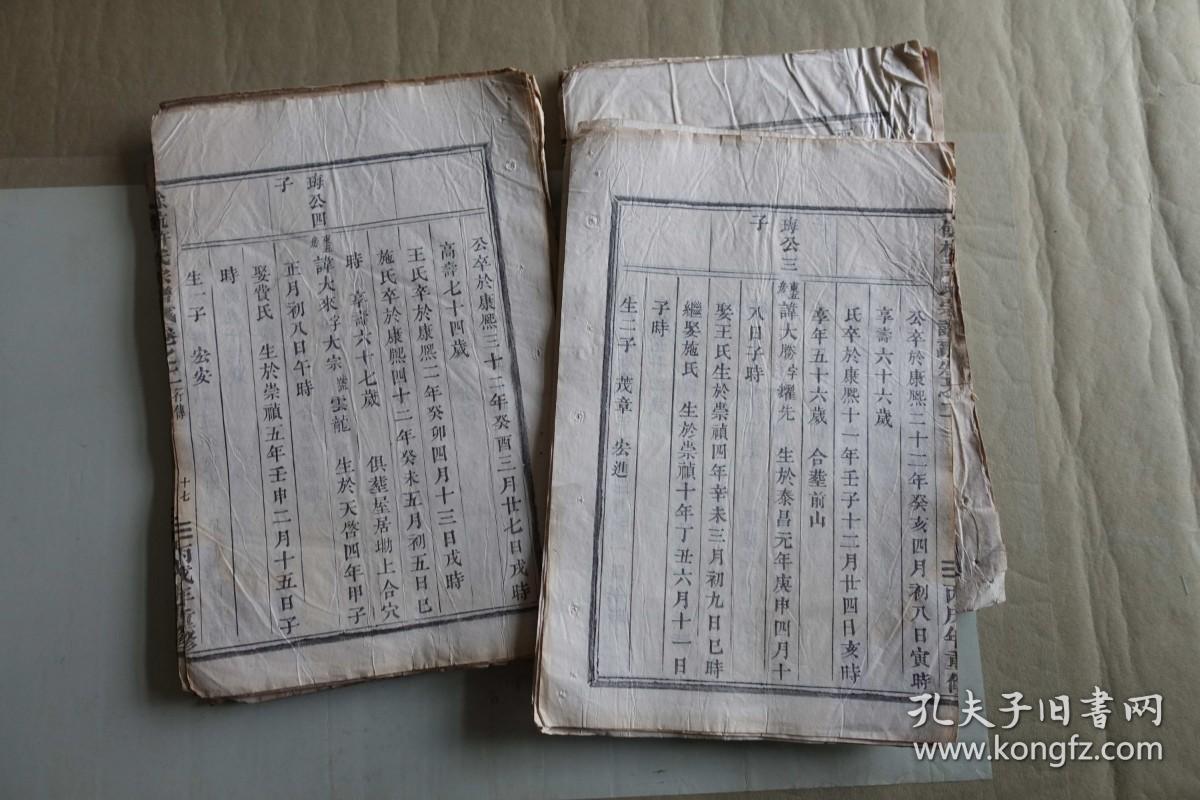 公卒於康熙二十二年癸亥四月初八日寅時
享壽六十六歲
氏卒於康熙十一年壬子十二月廿四日亥時
享年五十六歲 合塟前山
珻公三子
諱大勝字耀先 生於泰昌元年庚申四月十
八日子時
娶王氏生於崇禎四年辛未三月初九日巳時
繼娶施氏 生於崇禎十年丁丑六月十一日
子時
生二子 茂章 宏進
公卒於康熙三十二年癸酉三月廿七日戌時
高壽七十四歲
王氏卒於康熙二年癸卯四月十三日戌時
施氏卒於康熙四十二年癸未五月初五日巳
時 享壽六十七歲 俱塟屋居坳上合穴
珻公四子
諱大來字大宗 號雲龍 生於天啓四年甲子
正月初八日午時
娶貲氏 生於崇禎五年壬申二月十五日子
時
生一子 宏安
行傳 十七 丙戌年重修
孔夫子旧书网
www.kongfz.com